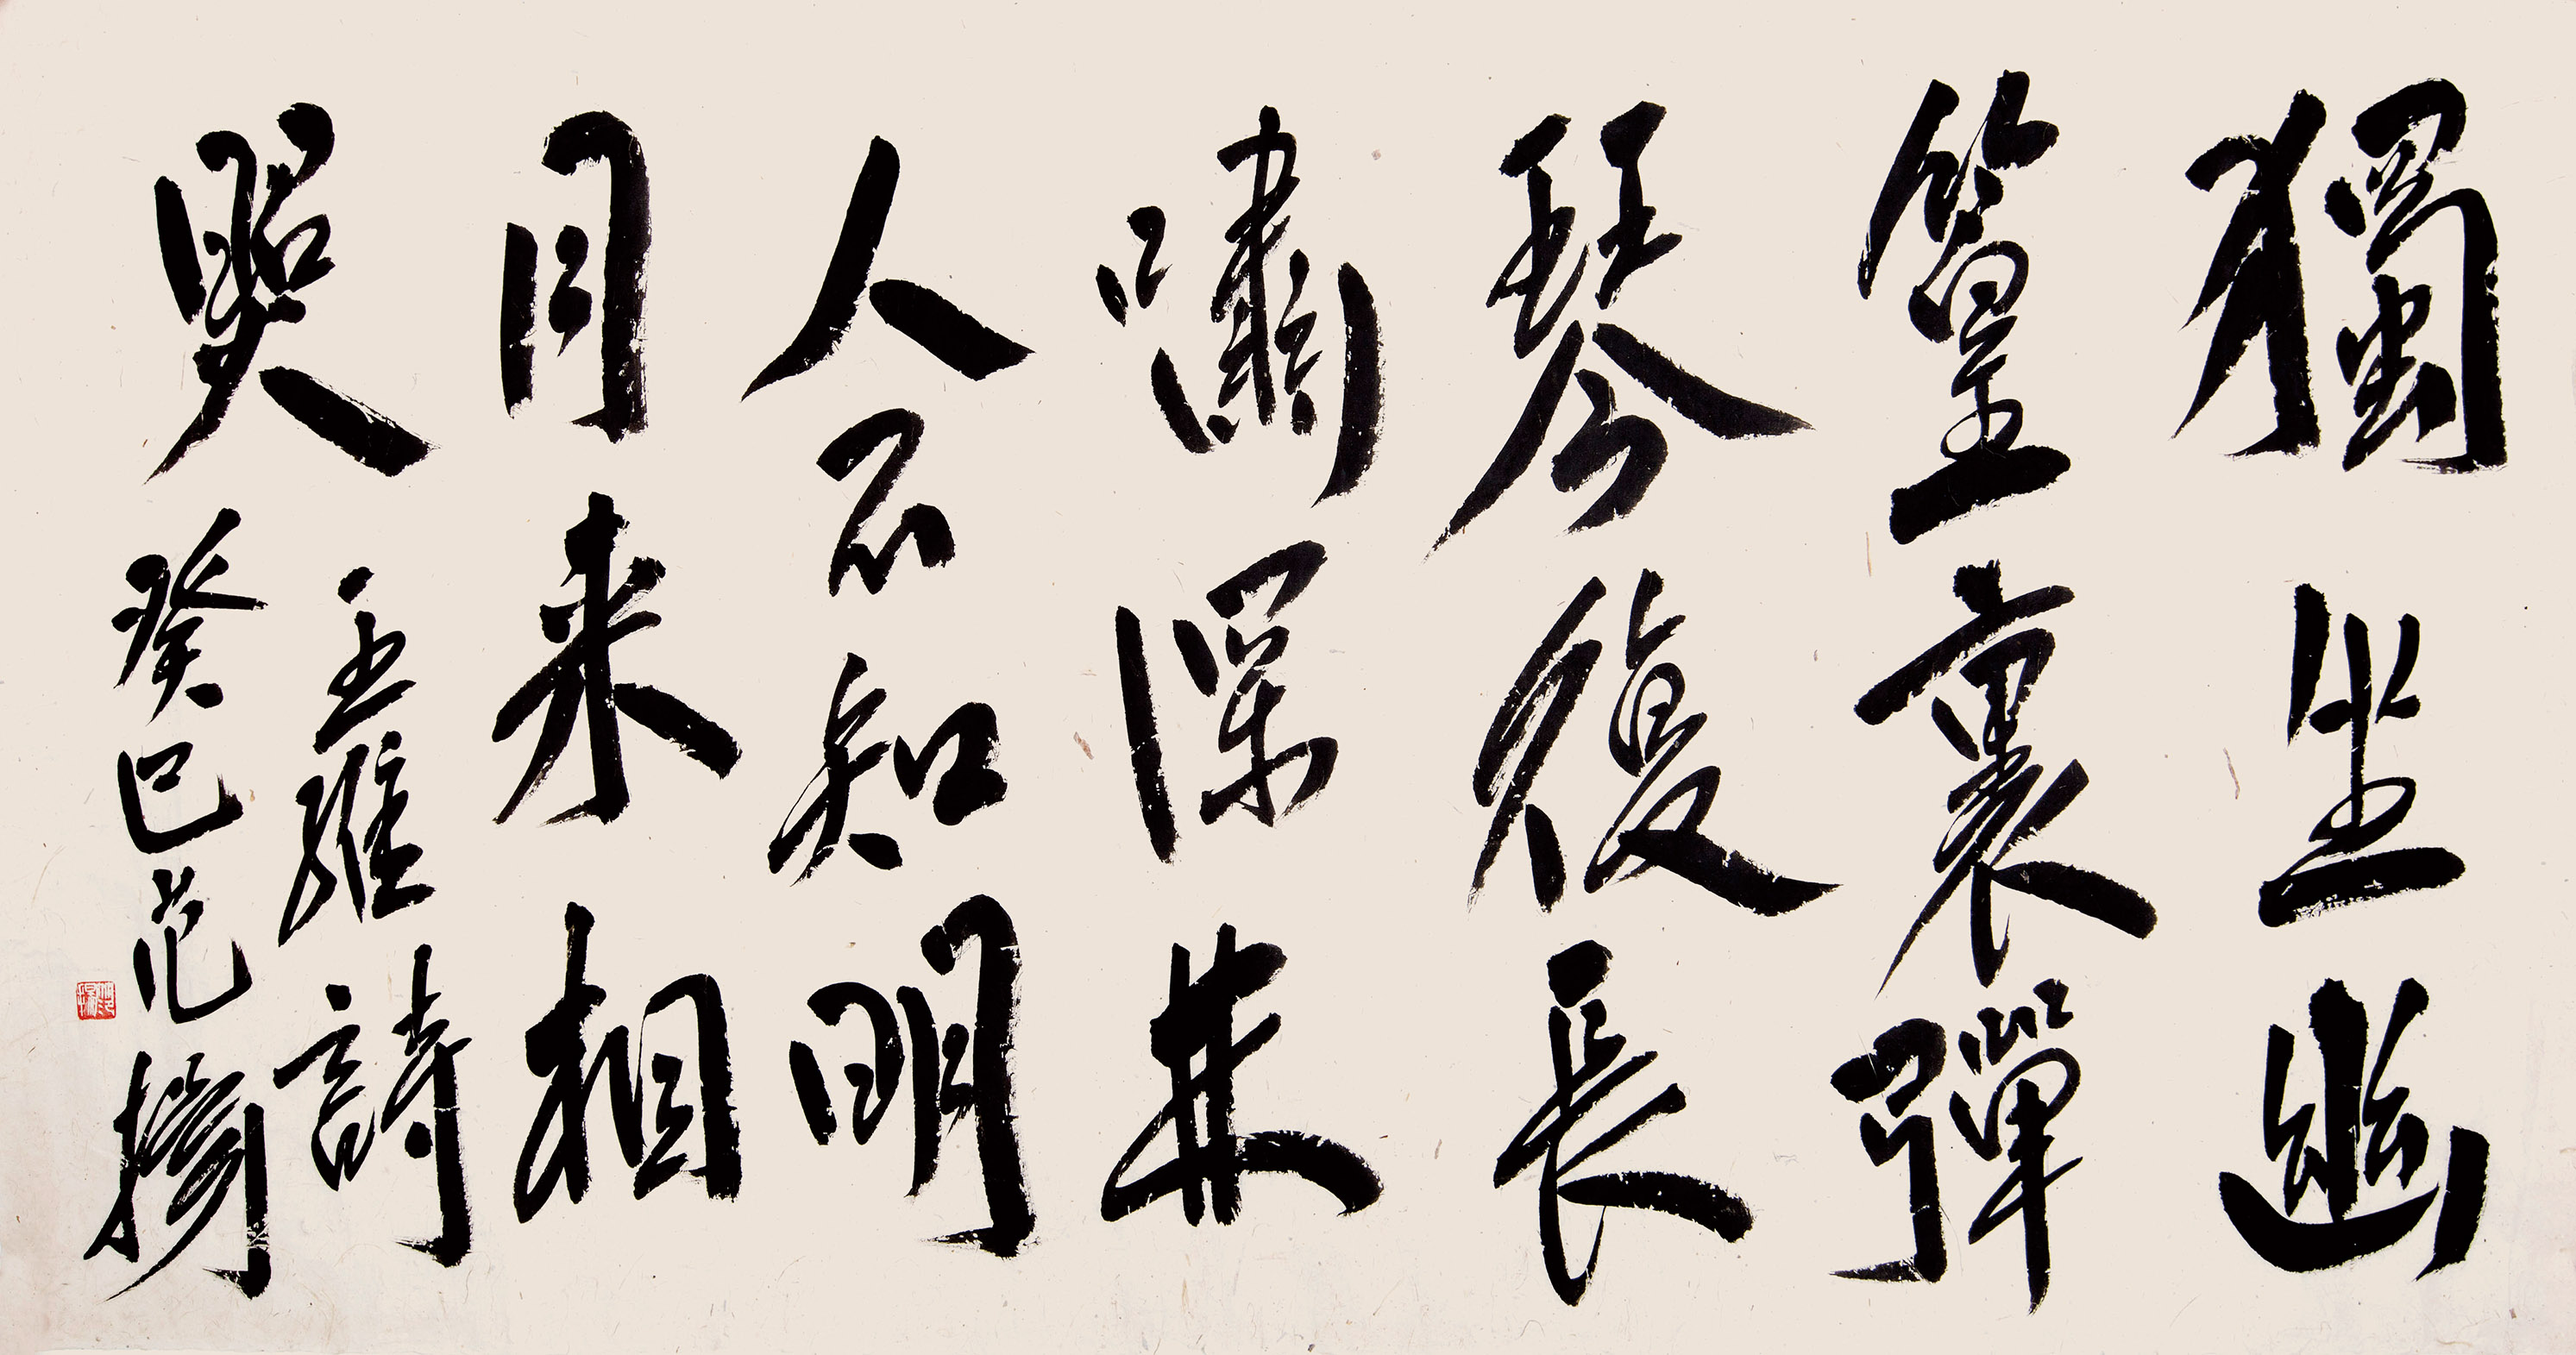 獨坐幽
篁裏彈
琴復長
嘯深林
人不知明
月来相
照
王維詩
癸巳范揚